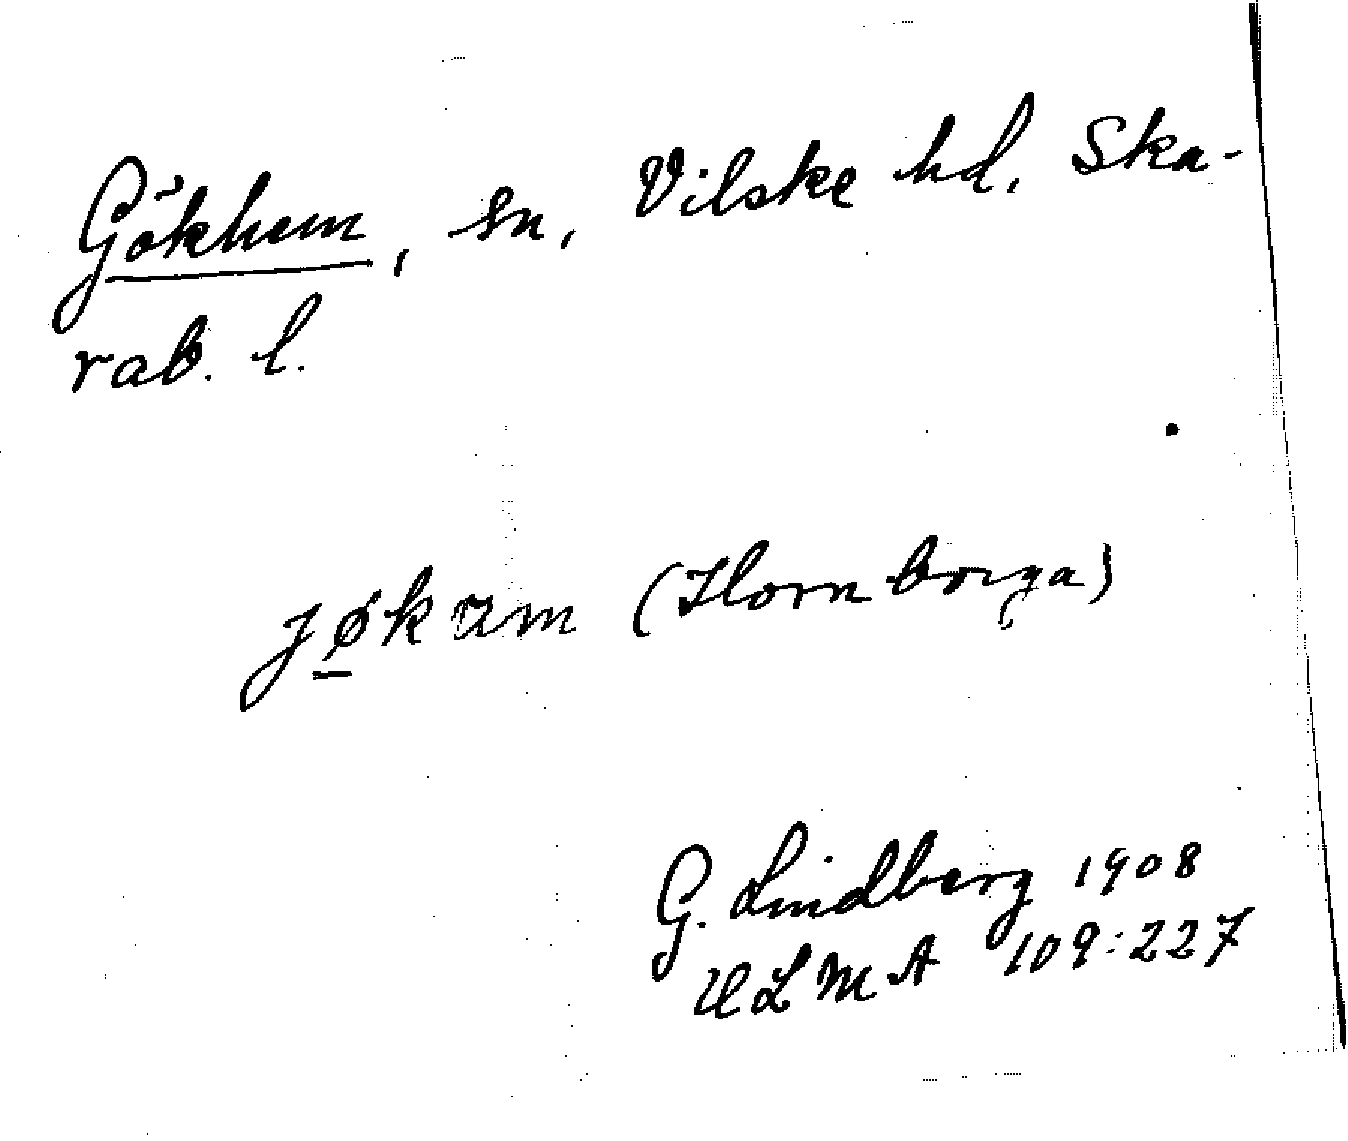 Gökhem, sn, Vilske hd, Ska-
rab. l.
jøkæm (Hornborga)
G. Lindberg 1908
ULMA 109:227